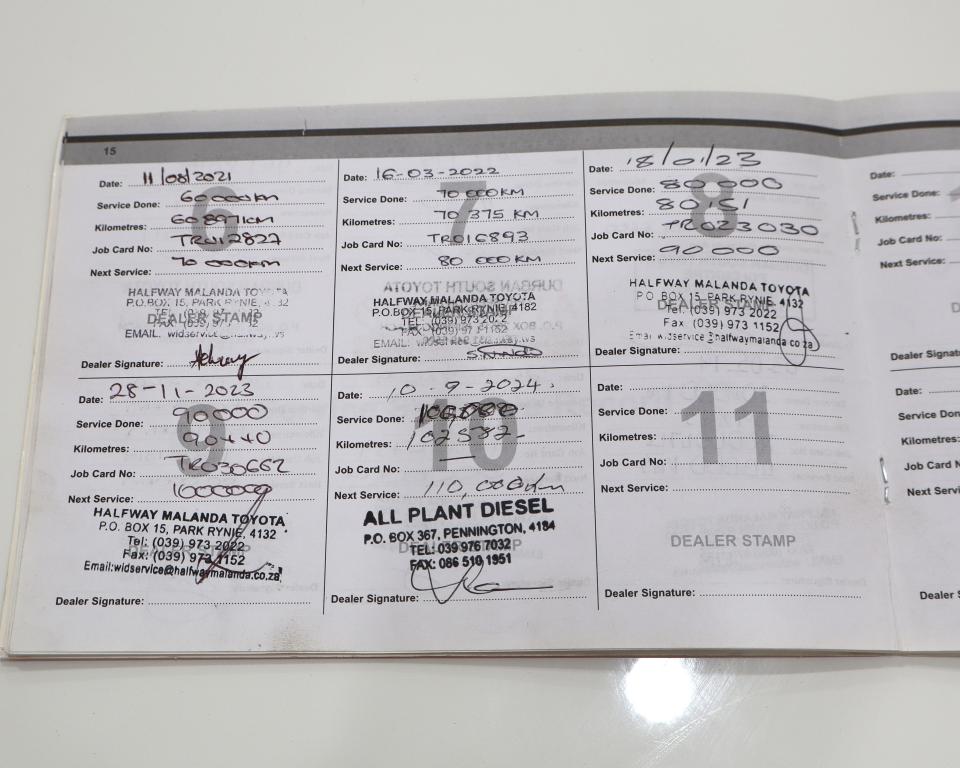 15
6
Date: 11/08/2021
Service Done: 60 000km
Kilometres: 60 897km
Job Card No: TR012827
Next Service: 70 000km
HALFWAY MALANDA TOYOTA
P.O.BOX 15, PARK RYNIE,
DEALER STAMP
EMAIL: widservice@
Dealer Signature:
7
Date: 16-03-2022
Service Done: 70 000KM
Kilometres: 70 375 KM
Job Card No: TR016893
Next Service: 80 000 KM
HALFWAY MALANDA TOYOTA
P.O.BOX 15, PARK RYNIE, 4182
TEL: (039) 973 2022
FAX: (039) 973 1152
Dealer Signature:
8
Date: 18/01/23
Service Done: 80 000
Kilometres: 80 51
Job Card No: TR023030
Next Service: 90 000
HALFWAY MALANDA TOYOTA
P O BOX 15, PARK RYNIE, 4132
DEALER STAMP
Tel: (039) 973 2022
Fax: (039) 973 1152
Email: widservice@halfwaymalanda.co.za
Dealer Signature:
9
Date: 28-11-2023
Service Done: 90000
Kilometres: 90440
Job Card No: TR030662
Next Service:
HALFWAY MALANDA TOYOTA
P.O. BOX 15, PARK RYNIE, 4132
Tel: (039) 973 2022
Fax: (039) 973 1152
Email:widservice@halfwaymalanda.co.za
Dealer Signature:
10
Date: 10-9-2024
Service Done: 100,000
Kilometres: 102582
Job Card No: —
Next Service: 110,000km
ALL PLANT DIESEL
P.O. BOX 367, PENNINGTON, 4184
TEL: 039 976 7032
DEALER STAMP
FAX: 086 510 1951
Dealer Signature:
11
Date:
Service Done:
Kilometres:
Job Card No:
Next Service:
DEALER STAMP
Dealer Signature:
Date:
Service Done:
Kilometres:
Job Card No:
Next Service:
Dealer
Date:
Service Don
Kilometres:
Job Card N
Next Servi
Dealer